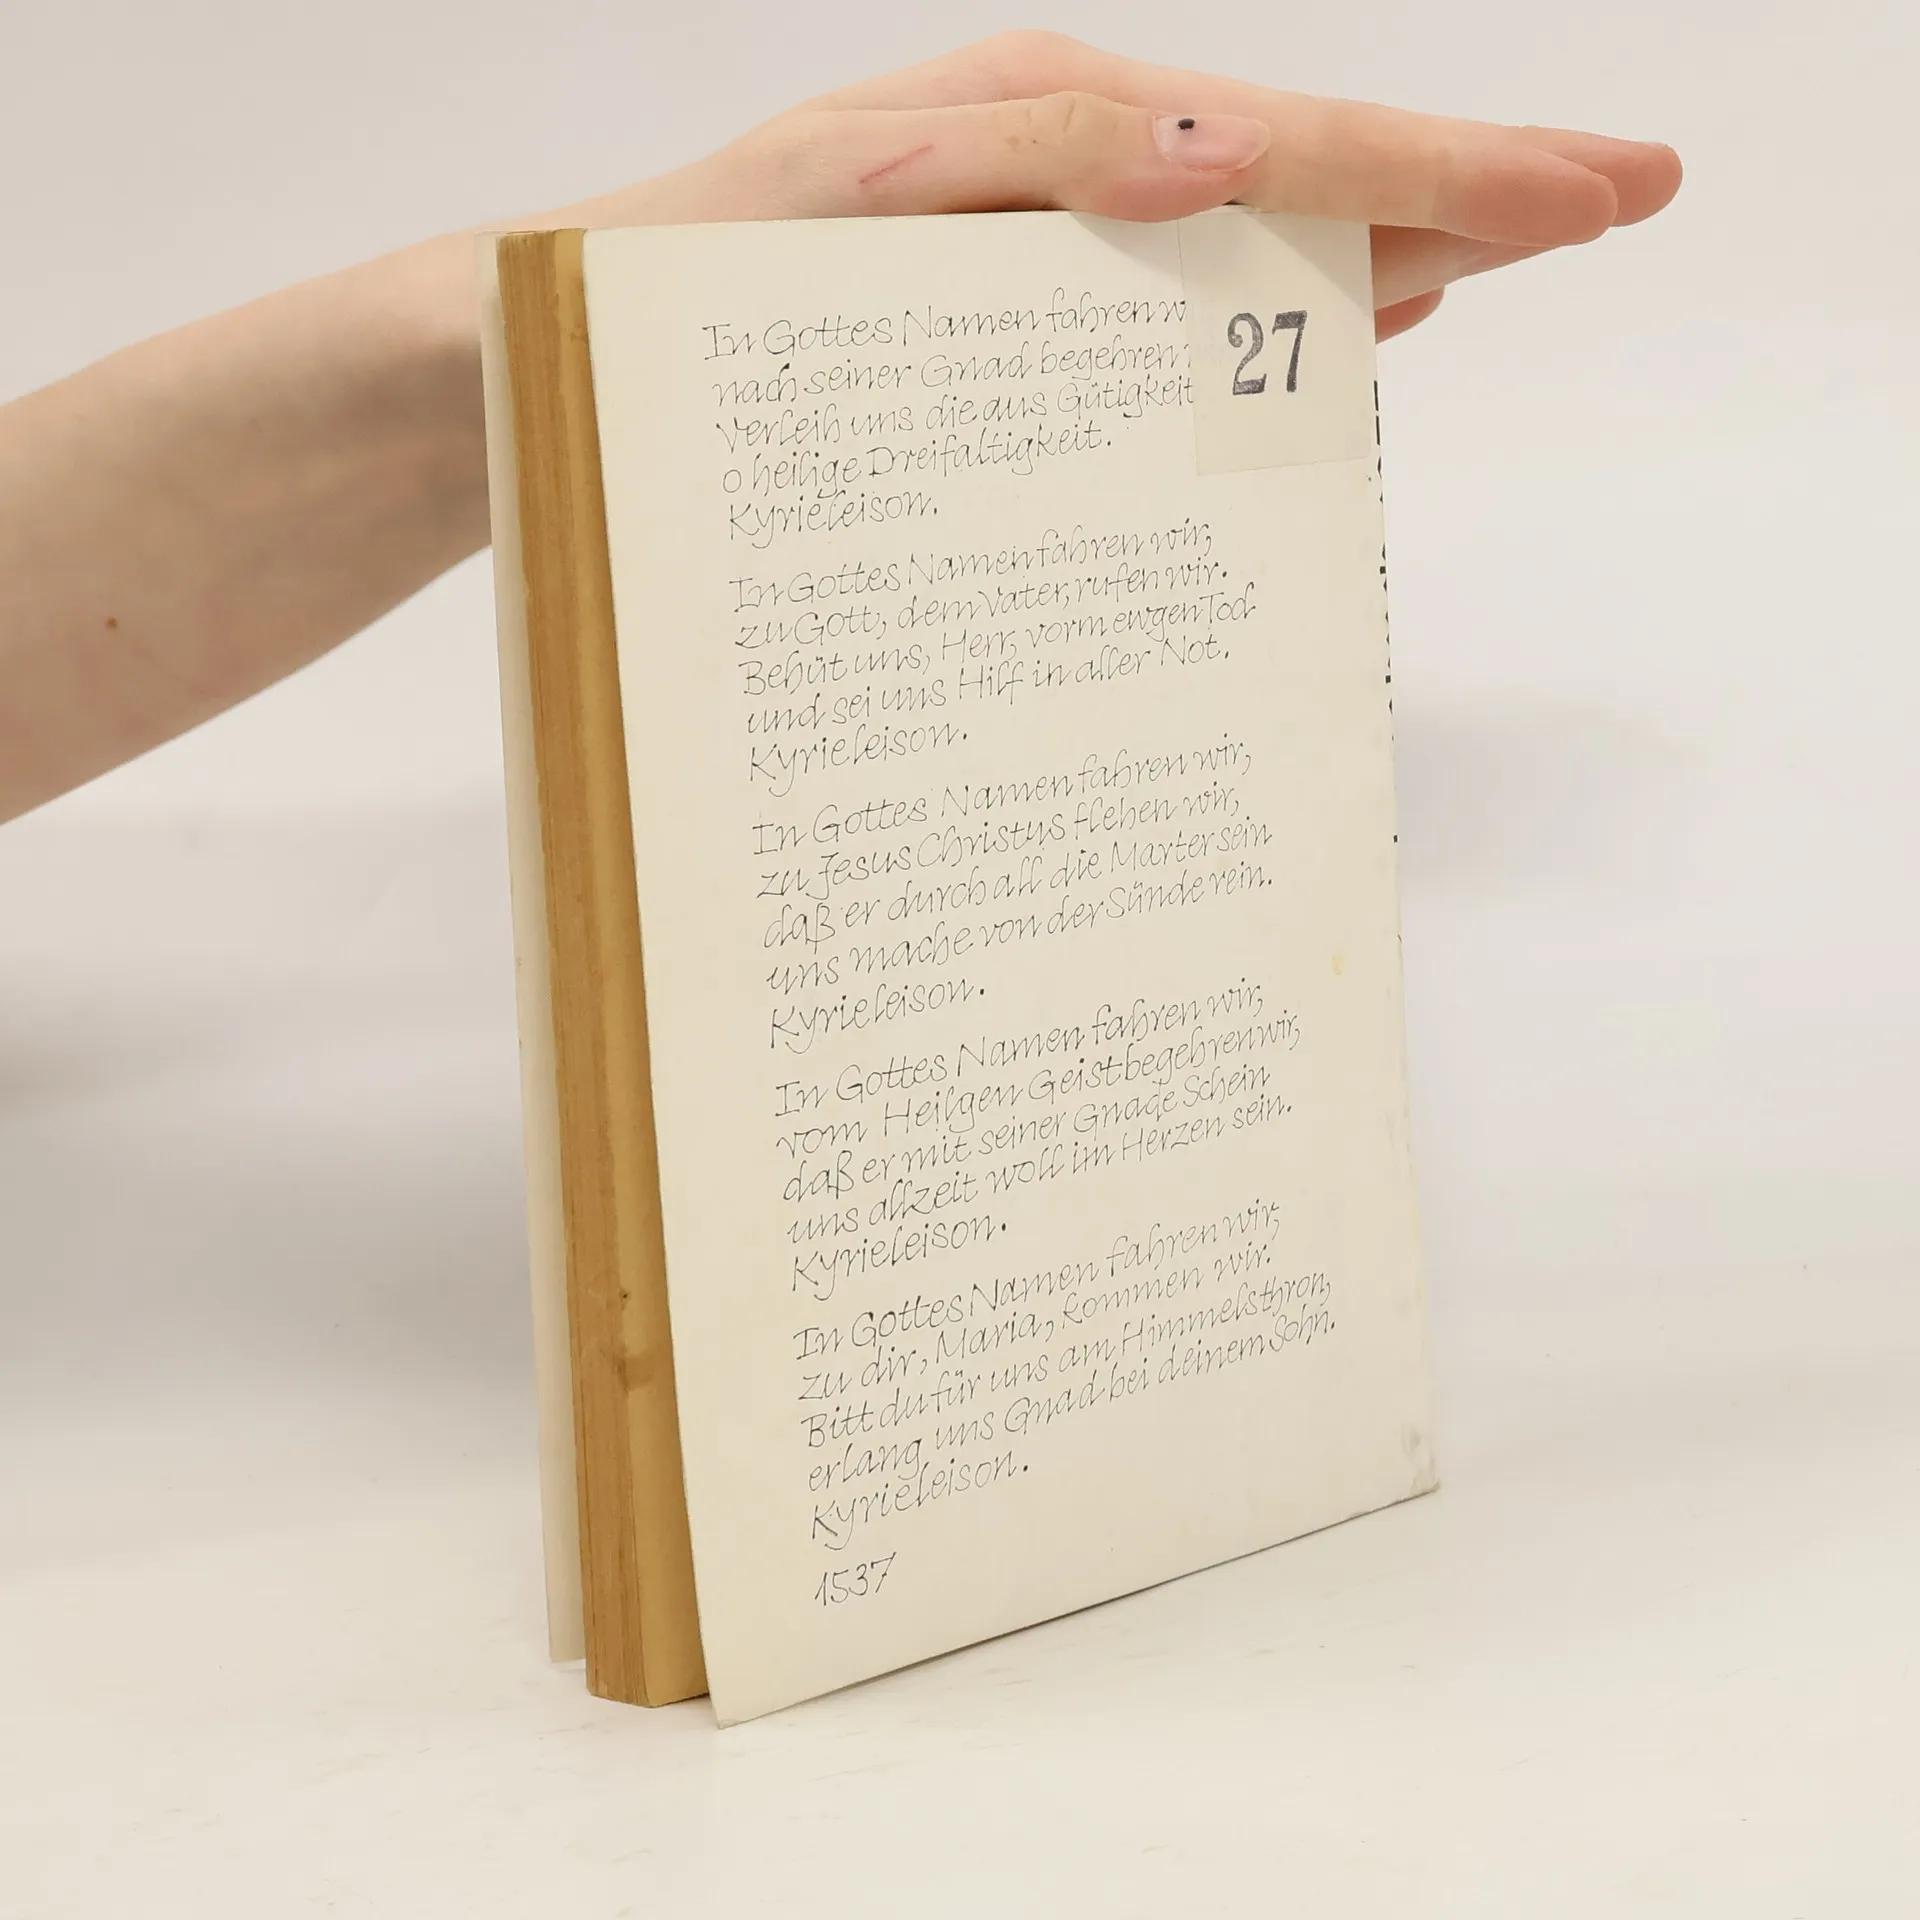 In Gottes Namen fahren w
nach seiner Gnad begehren
Verleih uns die aus Gütigkeit
o heilige Dreifaltigkeit.
Kyrieleison.
In Gottes Namen fahren wir,
zu Gott, dem Vater, rufen wir.
Behüt uns, Herr, vorm ewgen Tod
und sei uns Hilf in aller Not.
Kyrieleison.
In Gottes Namen fahren wir,
zu Jesus Christus flehen wir,
daß er durch all die Marter sein
uns mache von der Sünde rein.
Kyrieleison.
In Gottes Namen fahren wir,
vom Heilgen Geist begehren wir,
daß er mit seiner Gnade Schein
uns allzeit woll im Herzen sein.
Kyrieleison.
In Gottes Namen fahren wir,
zu dir, Maria, kommen wir.
Bitt du für uns am Himmelsthron,
erlang uns Gnad bei deinem Sohn.
Kyrieleison.
1537
27